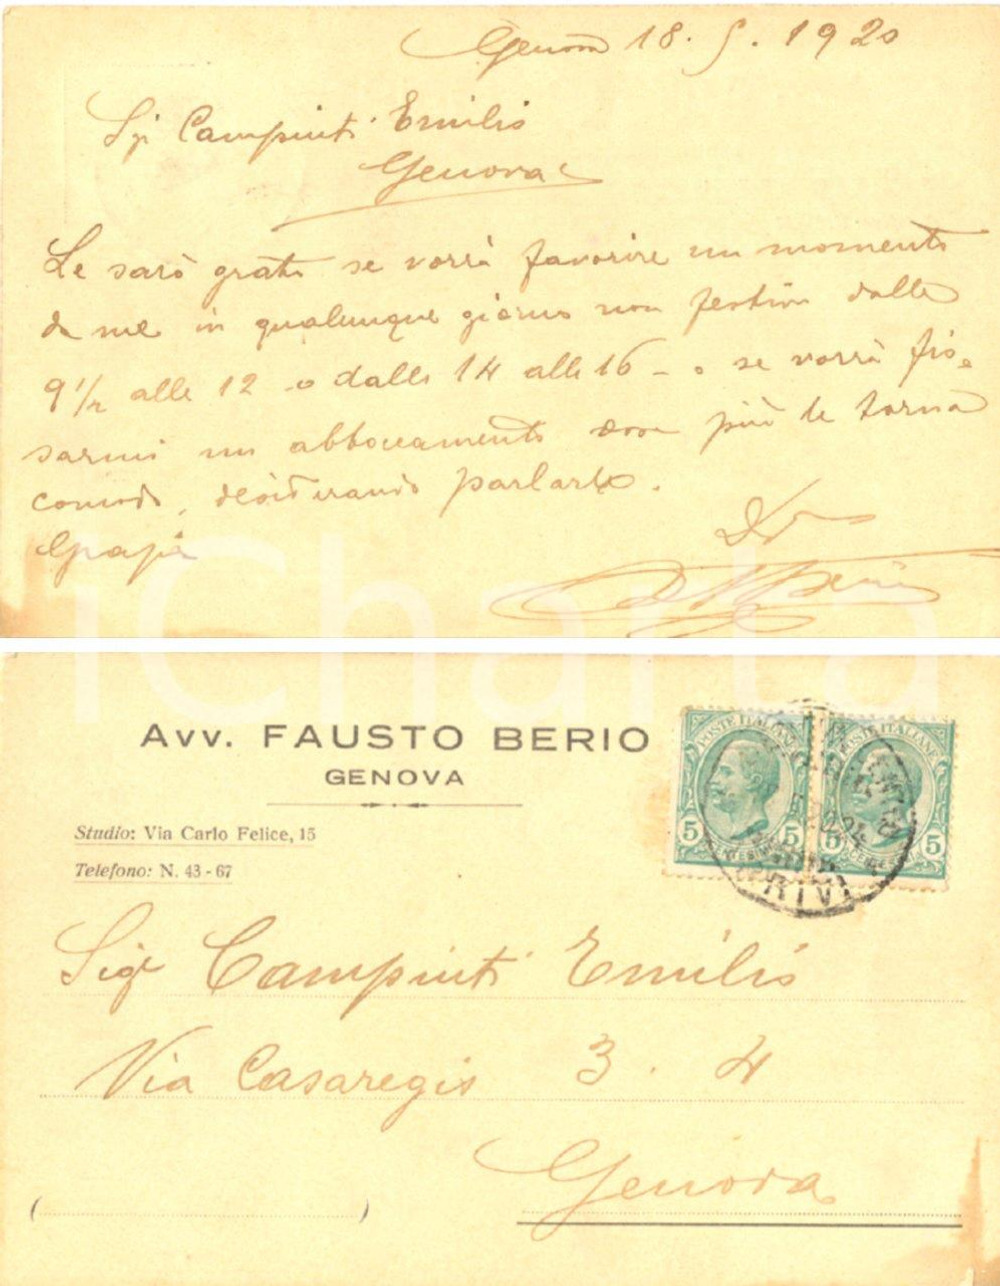 Genova 18. 5. 1920
Sig Campinti Emilio
Genova
Le sarò grato se vorrà favorire un momento
da me in qualunque giorno non festivo dalle
9 1/2 alle 12 o dalle 14 alle 16 - o se vorrà fis-
sarmi un abboccamento dove più le torna
comodo, desiderando parlarle.
Grazie
iCharta
Avv. FAUSTO BERIO
GENOVA
Studio: Via Carlo Felice, 15
Telefono: N. 43 - 67
POSTE ITALIANE POSTE ITALIANE
5 5 5 5
Sigr Campinti Emilio
Via Casaregis 3. 4
Genova
( )